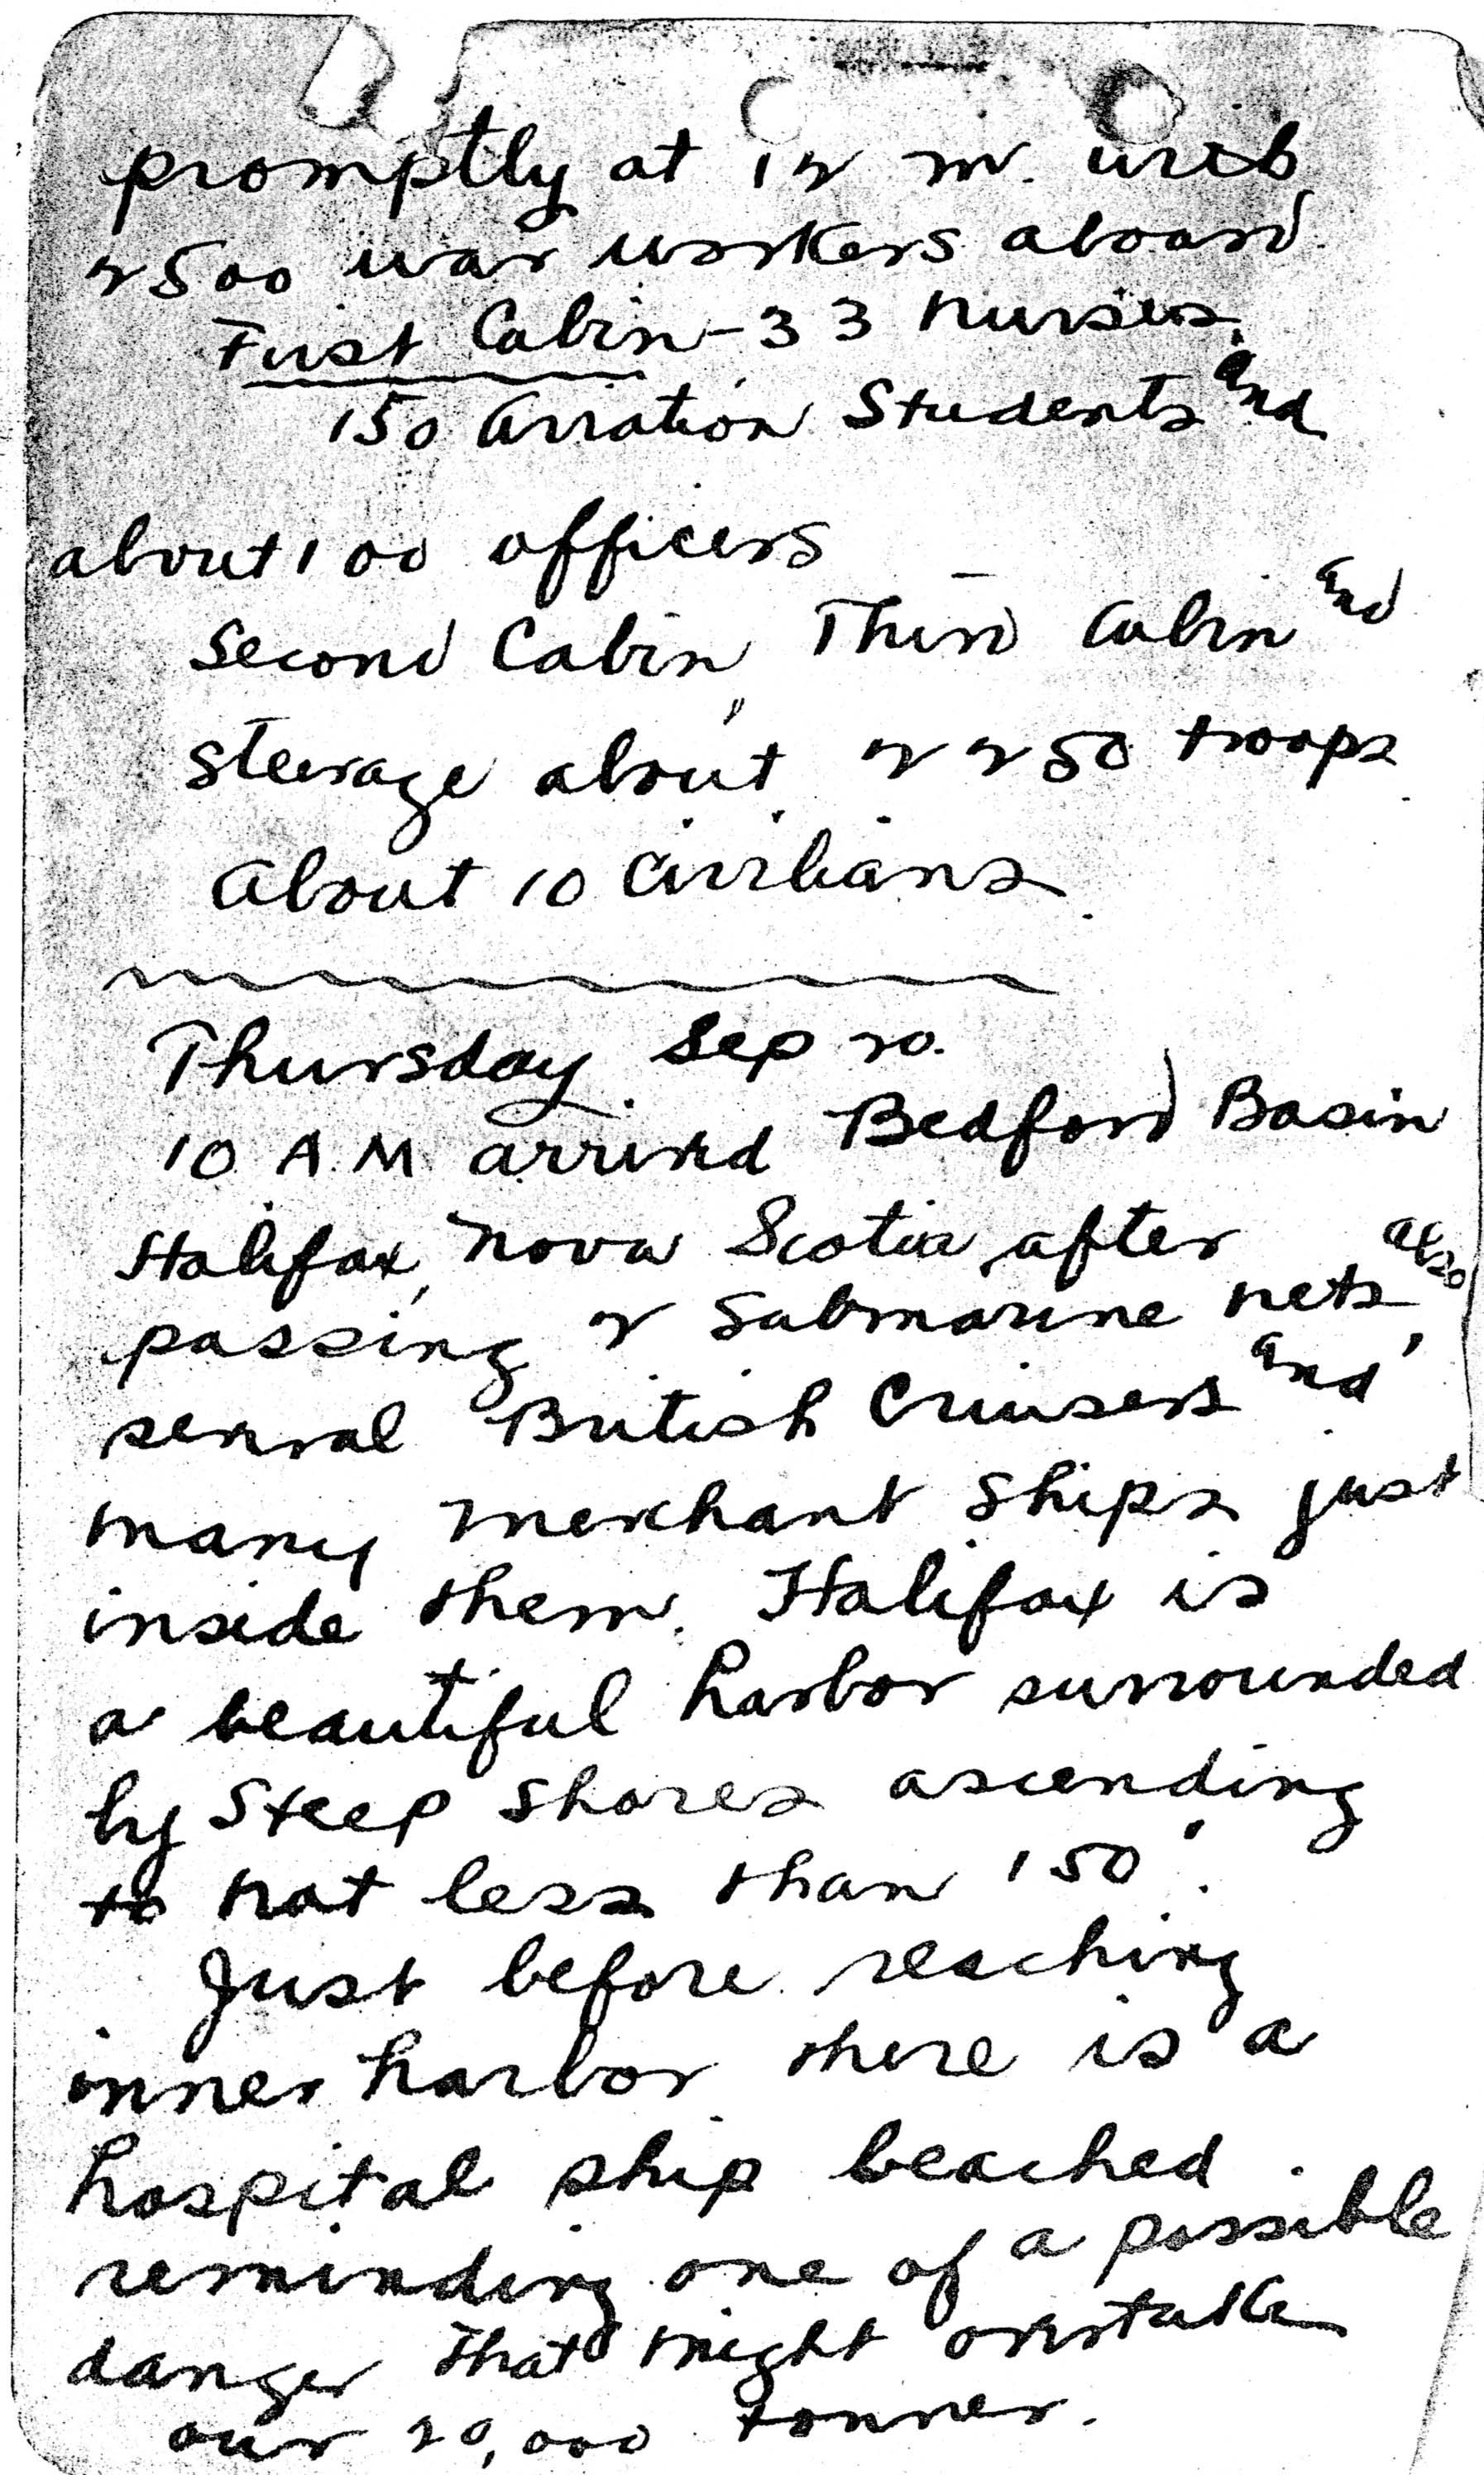 promptly at 12 m. with
2500 war workers aboard.
First Cabin - 33 nurses,
150 Aviation Students and
about 100 officers
Second Cabin, Third Cabin and
steerage about 2250 troops
About 10 Civilians.
Thursday Sep 20.
10 A.M. arrived Bedford Basin
Halifax, Nova Scotia, after
passing 2 submarine nets, also
several British Cruisers and
many merchant ships just
inside them. Halifax is
a beautiful harbor surrounded
by steep shores ascending
to not less than 150'.
Just before reaching
inner harbor there is a
hospital ship beached
reminding one of a possible
danger that might overtake
our 20,000 tonner.